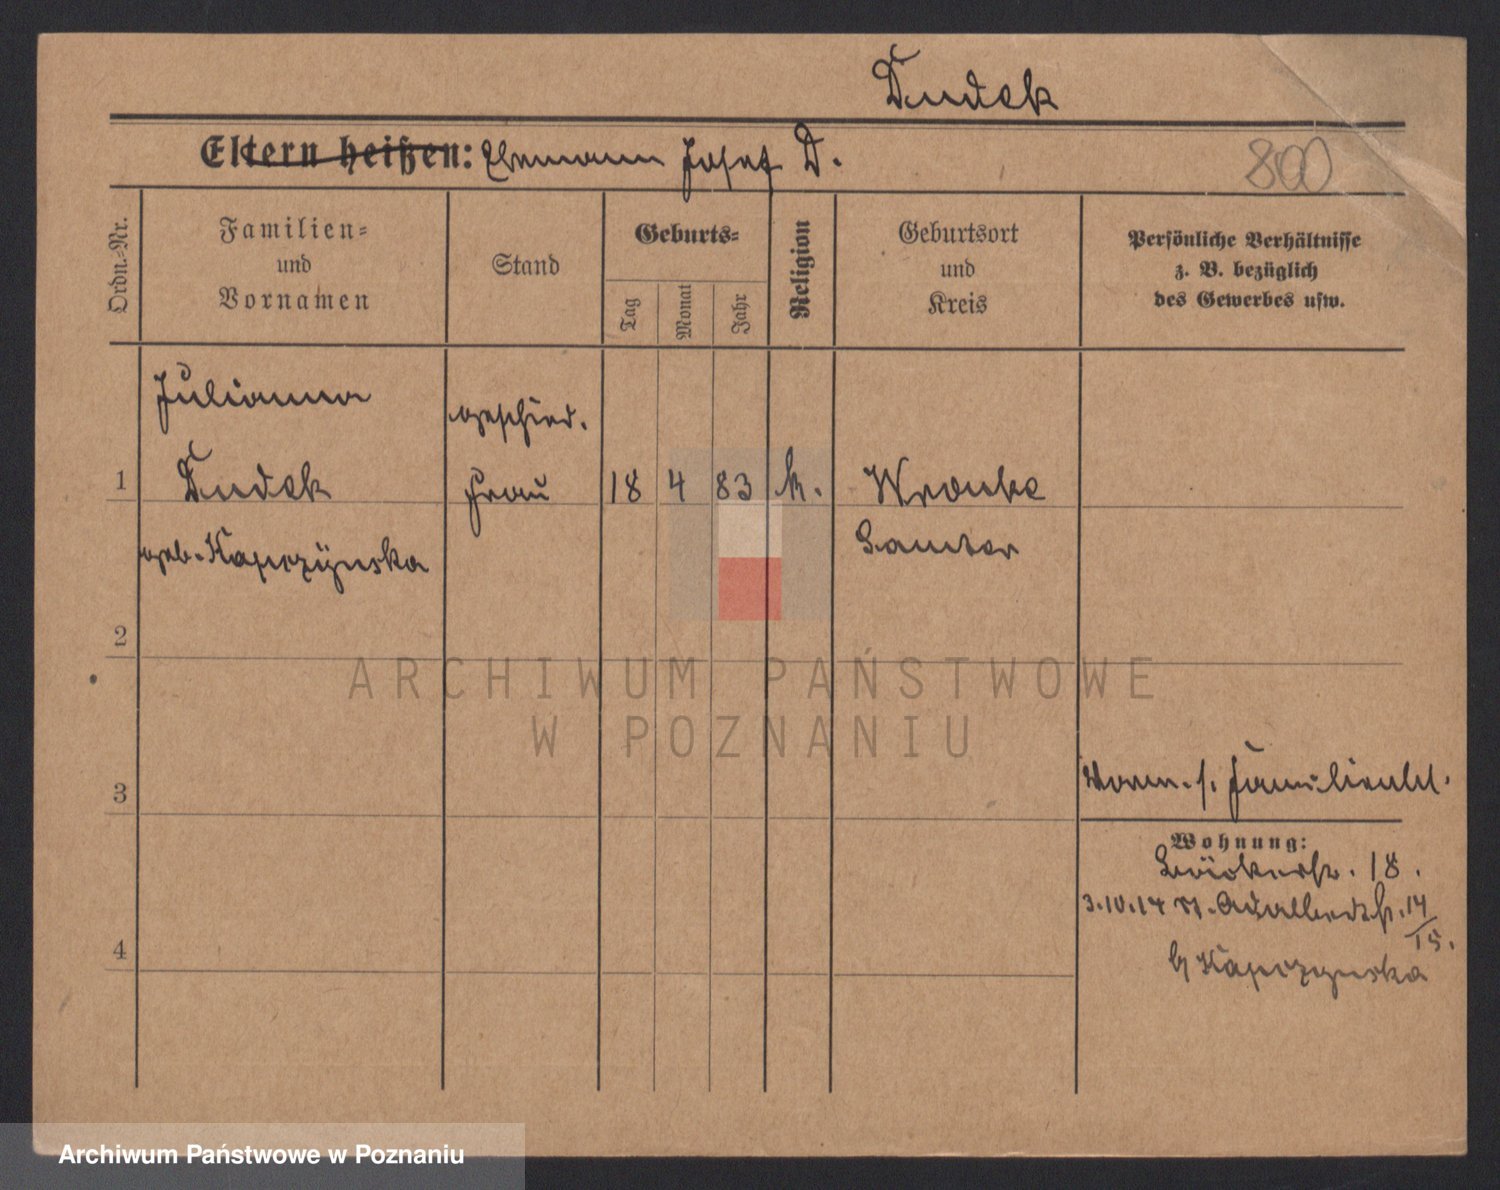 Dudek
Eltern heißen: Ehemann Josef D.
800
Ordn.-Nr.
Familien-
und
Vornamen
Stand
Geburts-
Tag
Monat
Jahr
Religion
Geburtsort
und
Kreis
Persönliche Verhältnisse
z. B. bezüglich
des Gewerbes usw.
Julianna
geschied.
1 Dudek Frau 18 4 83 k. Wronke
geb. Kaprzÿnska Samter
2
ARCHIWUM PAŃSTWOWE
W POZNANIU
3
Vorm. s. Familienbl.
Wohnung:
Bäckerstr. 18.
3.10.14 St. Adalbertstr. 14/15.
b/ Kaprzynska
4
Archiwum Państwowe w Poznaniu